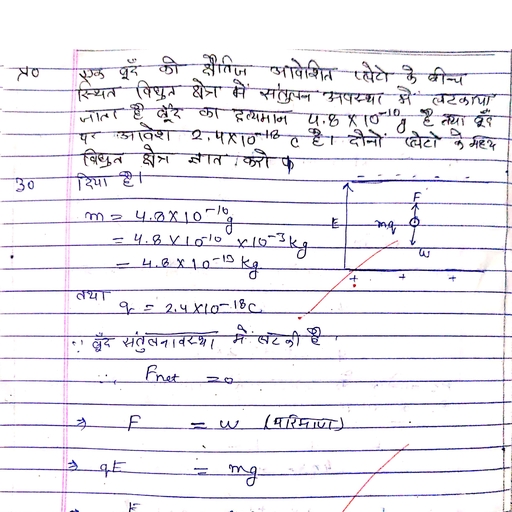 प्र० एक बूँद को क्षैतिज आवेशित प्लेटो के बीच
स्थित विद्युत क्षेत्र में संतुलन अवस्था में लटकाया
जाता है बूँद का द्रव्यमान 4.8×10⁻¹⁰g है तथा बूँद
पर आवेश 2.4×10⁻¹⁸ c है। दोनों प्लेटो के मध्य
विद्युत क्षेत्र ज्ञात करो
उ० दिया है।
m = 4.8×10⁻¹⁰g
= 4.8×10⁻¹⁰ ×10⁻³kg
= 4.8×10⁻¹³ kg
- - - - -
E
F
mg
W
+ + +
तथा
q = 2.4×10⁻¹⁸C
∵ बूँद संतुलनावस्था में लटकी है
∴ Fnet = 0
⇒ F = W (परिमाण)
⇒ qE = mg